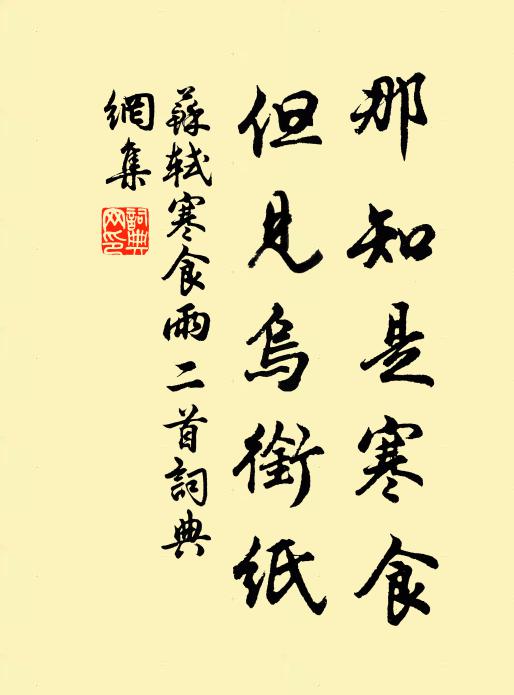 那知是寒食
但見烏銜紙
蘇軾寒食雨二首詞典
網集
詞典
网印